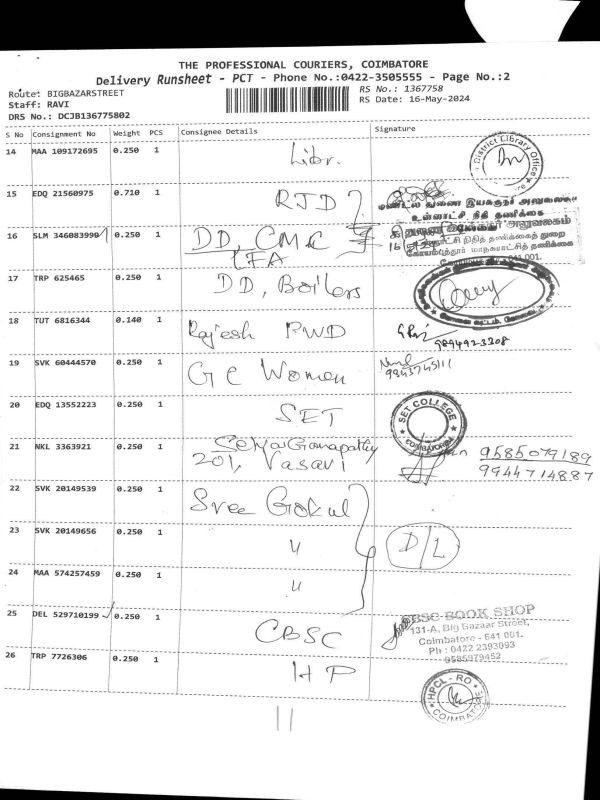 THE PROFESSIONAL COURIERS, COIMBATORE
Delivery Runsheet - PCT - Phone No.:0422-3505555 - Page No.:2
Route: BIGBAZARSTREET
RS No.: 1367758
Staff: RAVI
RS Date: 16-May-2024
DRS No.: DCJB136775802
S No Consignment No Weight PCS Consignee Details Signature
14 MAA 109172695 0.250 1 Libr.
District Library Office
15 EDQ 21560975 0.710 1 RJD
மண்டல துணை இயக்குநர் அலுவலகம்
உள்ளாட்சி நிதி தணிக்கை
16 SLM 346083990 0.250 1 DD, CMC
LFA
கோயம்புத்தூர் மாநகராட்சித் தணிக்கை
641 001.
17 TRP 625465 0.250 1 DD, Boilers
18 TUT 6816344 0.140 1 Rajesh PWD
9894923208
19 SVK 60444570 0.250 1 G C Women
9943745111
20 EDQ 13552223 0.250 1 SET
SET COLLEGE
COIMBATORE
21 NKL 3363921 0.250 1 Selva Ganapathy
201, Vasavi
9585079189
9944714887
22 SVK 20149539 0.250 1 Sree Gokul
23 SVK 20149656 0.250 1 "
D/L
24 MAA 574257459 0.250 1 "
25 DEL 529710199 0.250 1 CBSC
CBSC BOOK SHOP
131-A, Big Gazaar Street,
Coimbatore - 641 001.
Ph : 0422 2393093
9585979452
26 TRP 7726306 0.250 1 HP
HPCL - RO
COIMBATORE
11